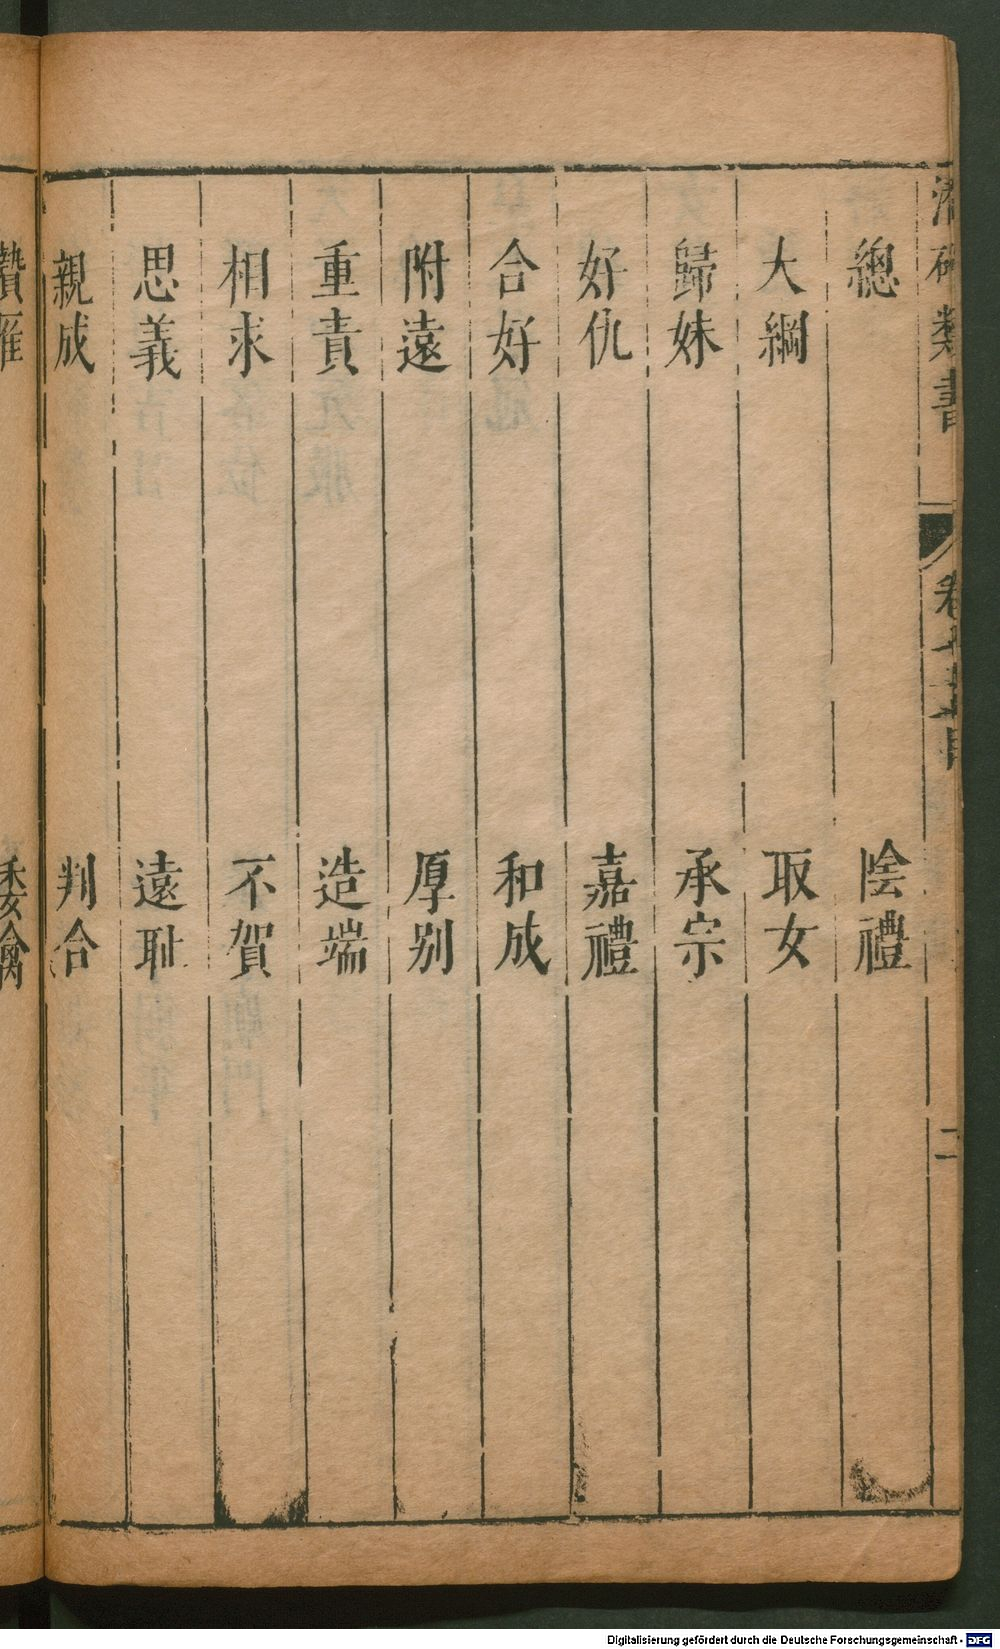 類書
總　陰禮
大綱　取女
歸妹　承宗
好仇　嘉禮
合好　和成
附遠　厚别
重責　造端
相求　不賀
思義　遠耻
親成　判合
贄雁　委禽
Digitalisierung gefördert durch die Deutsche Forschungsgemeinschaft - DFG